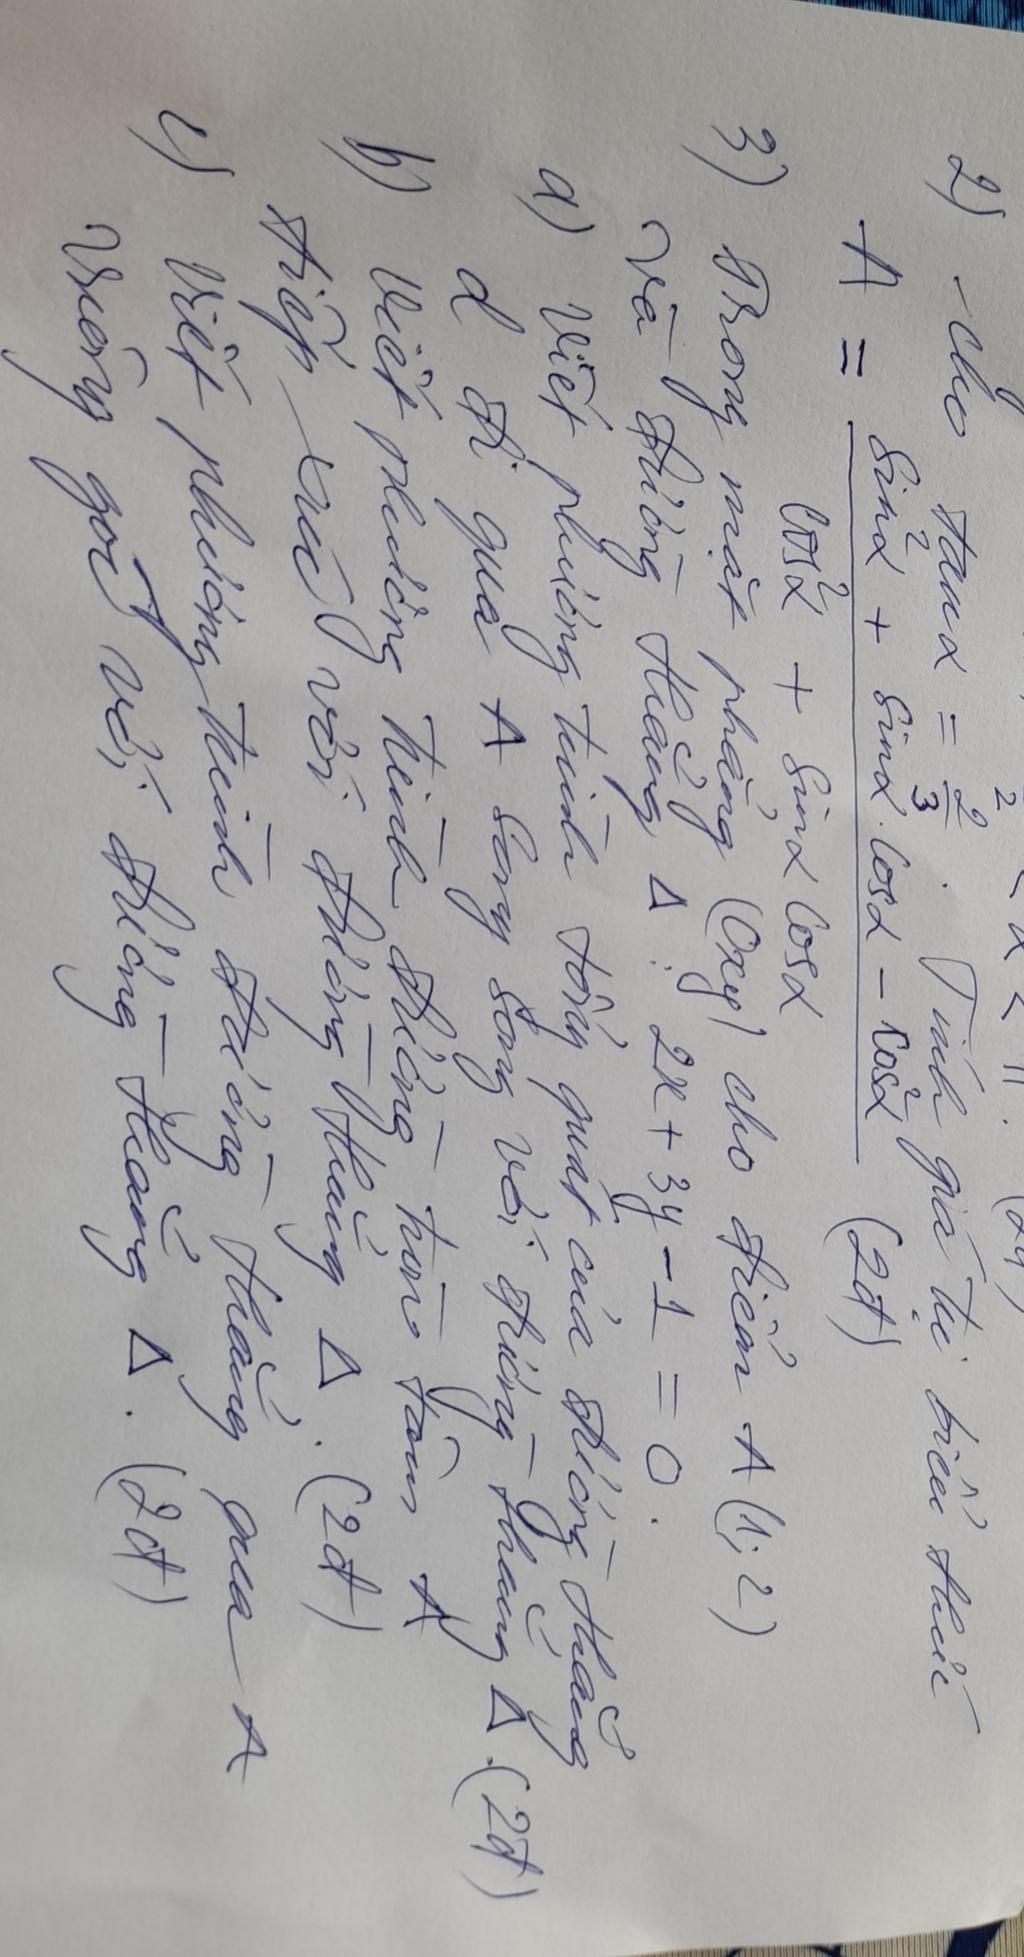 π/2 < α < π. (2đ)
2) Cho tanα = 2/3. Tính giá trị biểu thức
A = (sin²α + sinα.cosα - cos²α) / (cos²α + sinα cosα) (2đ)
3) Trong mặt phẳng (Oxy) cho điểm A(1; 2)
và đường thẳng Δ: 2x + 3y - 1 = 0.
a) Viết phương trình tổng quát của đường thẳng
d đi qua A song song với đường thẳng Δ. (2đ)
b) Viết phương trình đường tròn tâm A
tiếp xúc với đường thẳng Δ. (2đ)
c) Viết phương trình đường thẳng qua A
vuông góc với đường thẳng Δ. (2đ)